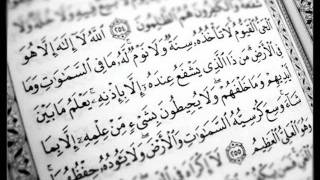 وَلَا خُلَّةٌ وَلَا
شَفَٰعَةٌ وَٱلْكَٰفِرُونَ هُمُ ٱلظَّٰلِمُونَ ٢٥٤ ٱللَّهُ لَآ إِلَٰهَ إِلَّا هُوَ
ٱلْحَىُّ ٱلْقَيُّومُ لَا تَأْخُذُهُۥ سِنَةٌ وَلَا نَوْمٌ لَّهُۥ مَا فِى ٱلسَّمَٰوَٰتِ وَمَا
فِى ٱلْأَرْضِ مَن ذَا ٱلَّذِى يَشْفَعُ عِندَهُۥٓ إِلَّا بِإِذْنِهِۦ يَعْلَمُ مَا بَيْنَ
أَيْدِيهِمْ وَمَا خَلْفَهُمْ وَلَا يُحِيطُونَ بِشَىْءٍ مِّنْ عِلْمِهِۦٓ إِلَّا بِمَا
شَآءَ وَسِعَ كُرْسِيُّهُ ٱلسَّمَٰوَٰتِ وَٱلْأَرْضَ وَلَا يَـُٔودُهُۥ حِفْظُهُمَا
وَهُوَ ٱلْعَلِىُّ ٱلْعَظِيمُ ٢٥٥ لَآ إِكْرَاهَ فِى